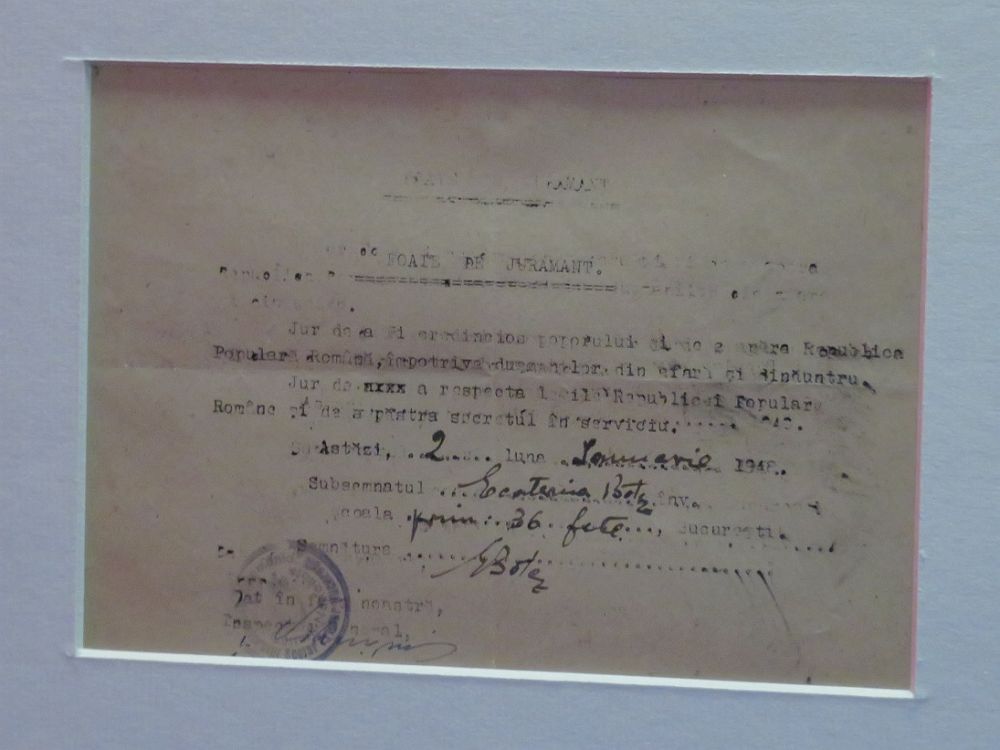 FOAIE DE JURAMANT.
Jur de a fi credincios poporului și de a apăra Republica
Populară Română, împotriva dușmanilor din afară și dinăuntru.
Jur de xxxx a respecta legile Republicei Populare
Române și de a păstra secretul în serviciu.
Astăzi, 2 luna Ianuarie 1948.
Subsemnatul Ecaterina Botez înv.
școala prim. 36 fete, București.
Semnătura EBotez
Dat în fața noastră,
Inspector General,